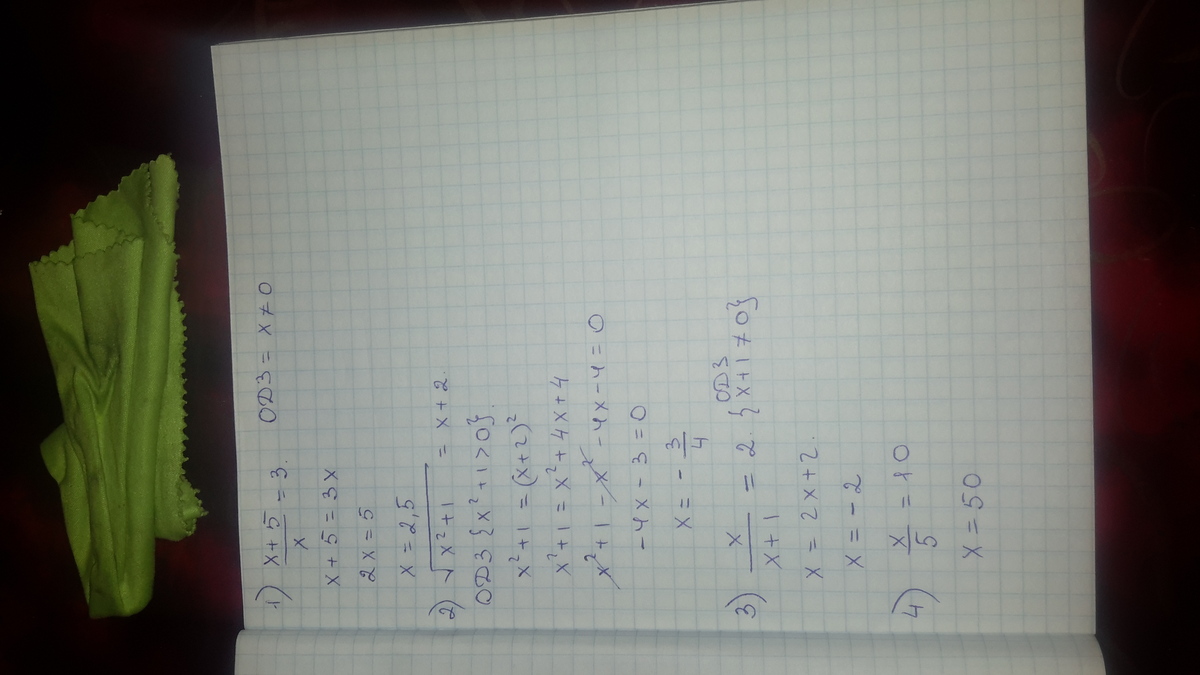 1) x+5/x = 3. ОДЗ = x ≠ 0
x+5=3x
2x=5
x=2,5
2) √x²+1 = x+2.
ОДЗ {x²+1>0}.
x²+1=(x+2)²
x²+1=x²+4x+4
x²+1-x²-4x-4=0
-4x-3=0
x=-3/4
3) x/x+1 = 2. ОДЗ {x+1≠0}
x=2x+2.
x=-2
4) x/5=10
x=50